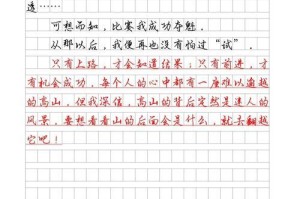 造……
可想而知，比赛我成功夺魁。
从那以后，我便再也没有怕过“试”。
只有上路，才会知道结果；只有前进，才
有机会成功，每个人的心中都有一座难以逾越
的高山，但我深信，高山的背后定然是迷人的
风景，要想看看山的后面会是什么，就去翻越
它吧！